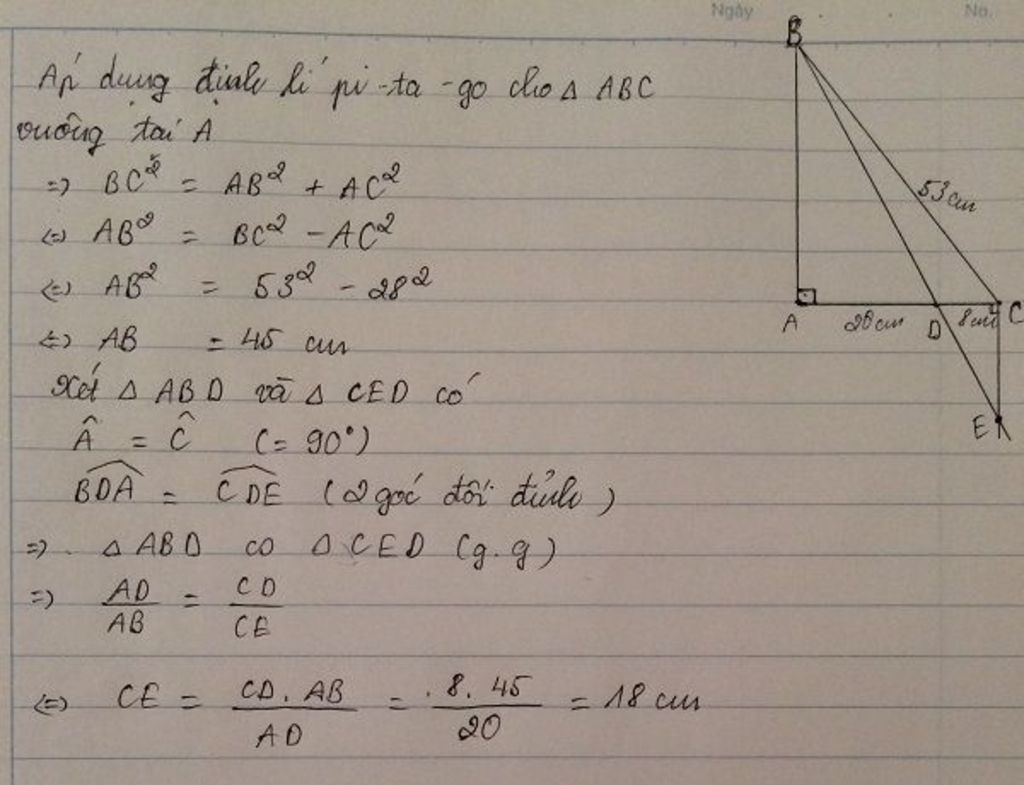 Ngày No.
Áp dụng định lí pi-ta-go cho △ ABC
vuông tại A
=> BC² = AB² + AC²
<=> AB² = BC² - AC²
<=> AB² = 53² - 28²
<=> AB = 45 cm
Xét △ ABD và △ CED có
Â = Ĉ (= 90°)
\widehat{BDA} = \widehat{CDE} (2 góc đối đỉnh)
=> △ ABD ∽ △ CED (g.g)
=> \frac{AD}{AB} = \frac{CD}{CE}
<=> CE = \frac{CD . AB}{AD} = \frac{8 . 45}{20} = 18 cm
B
53 cm
A 20 cm D 8 cm C
E